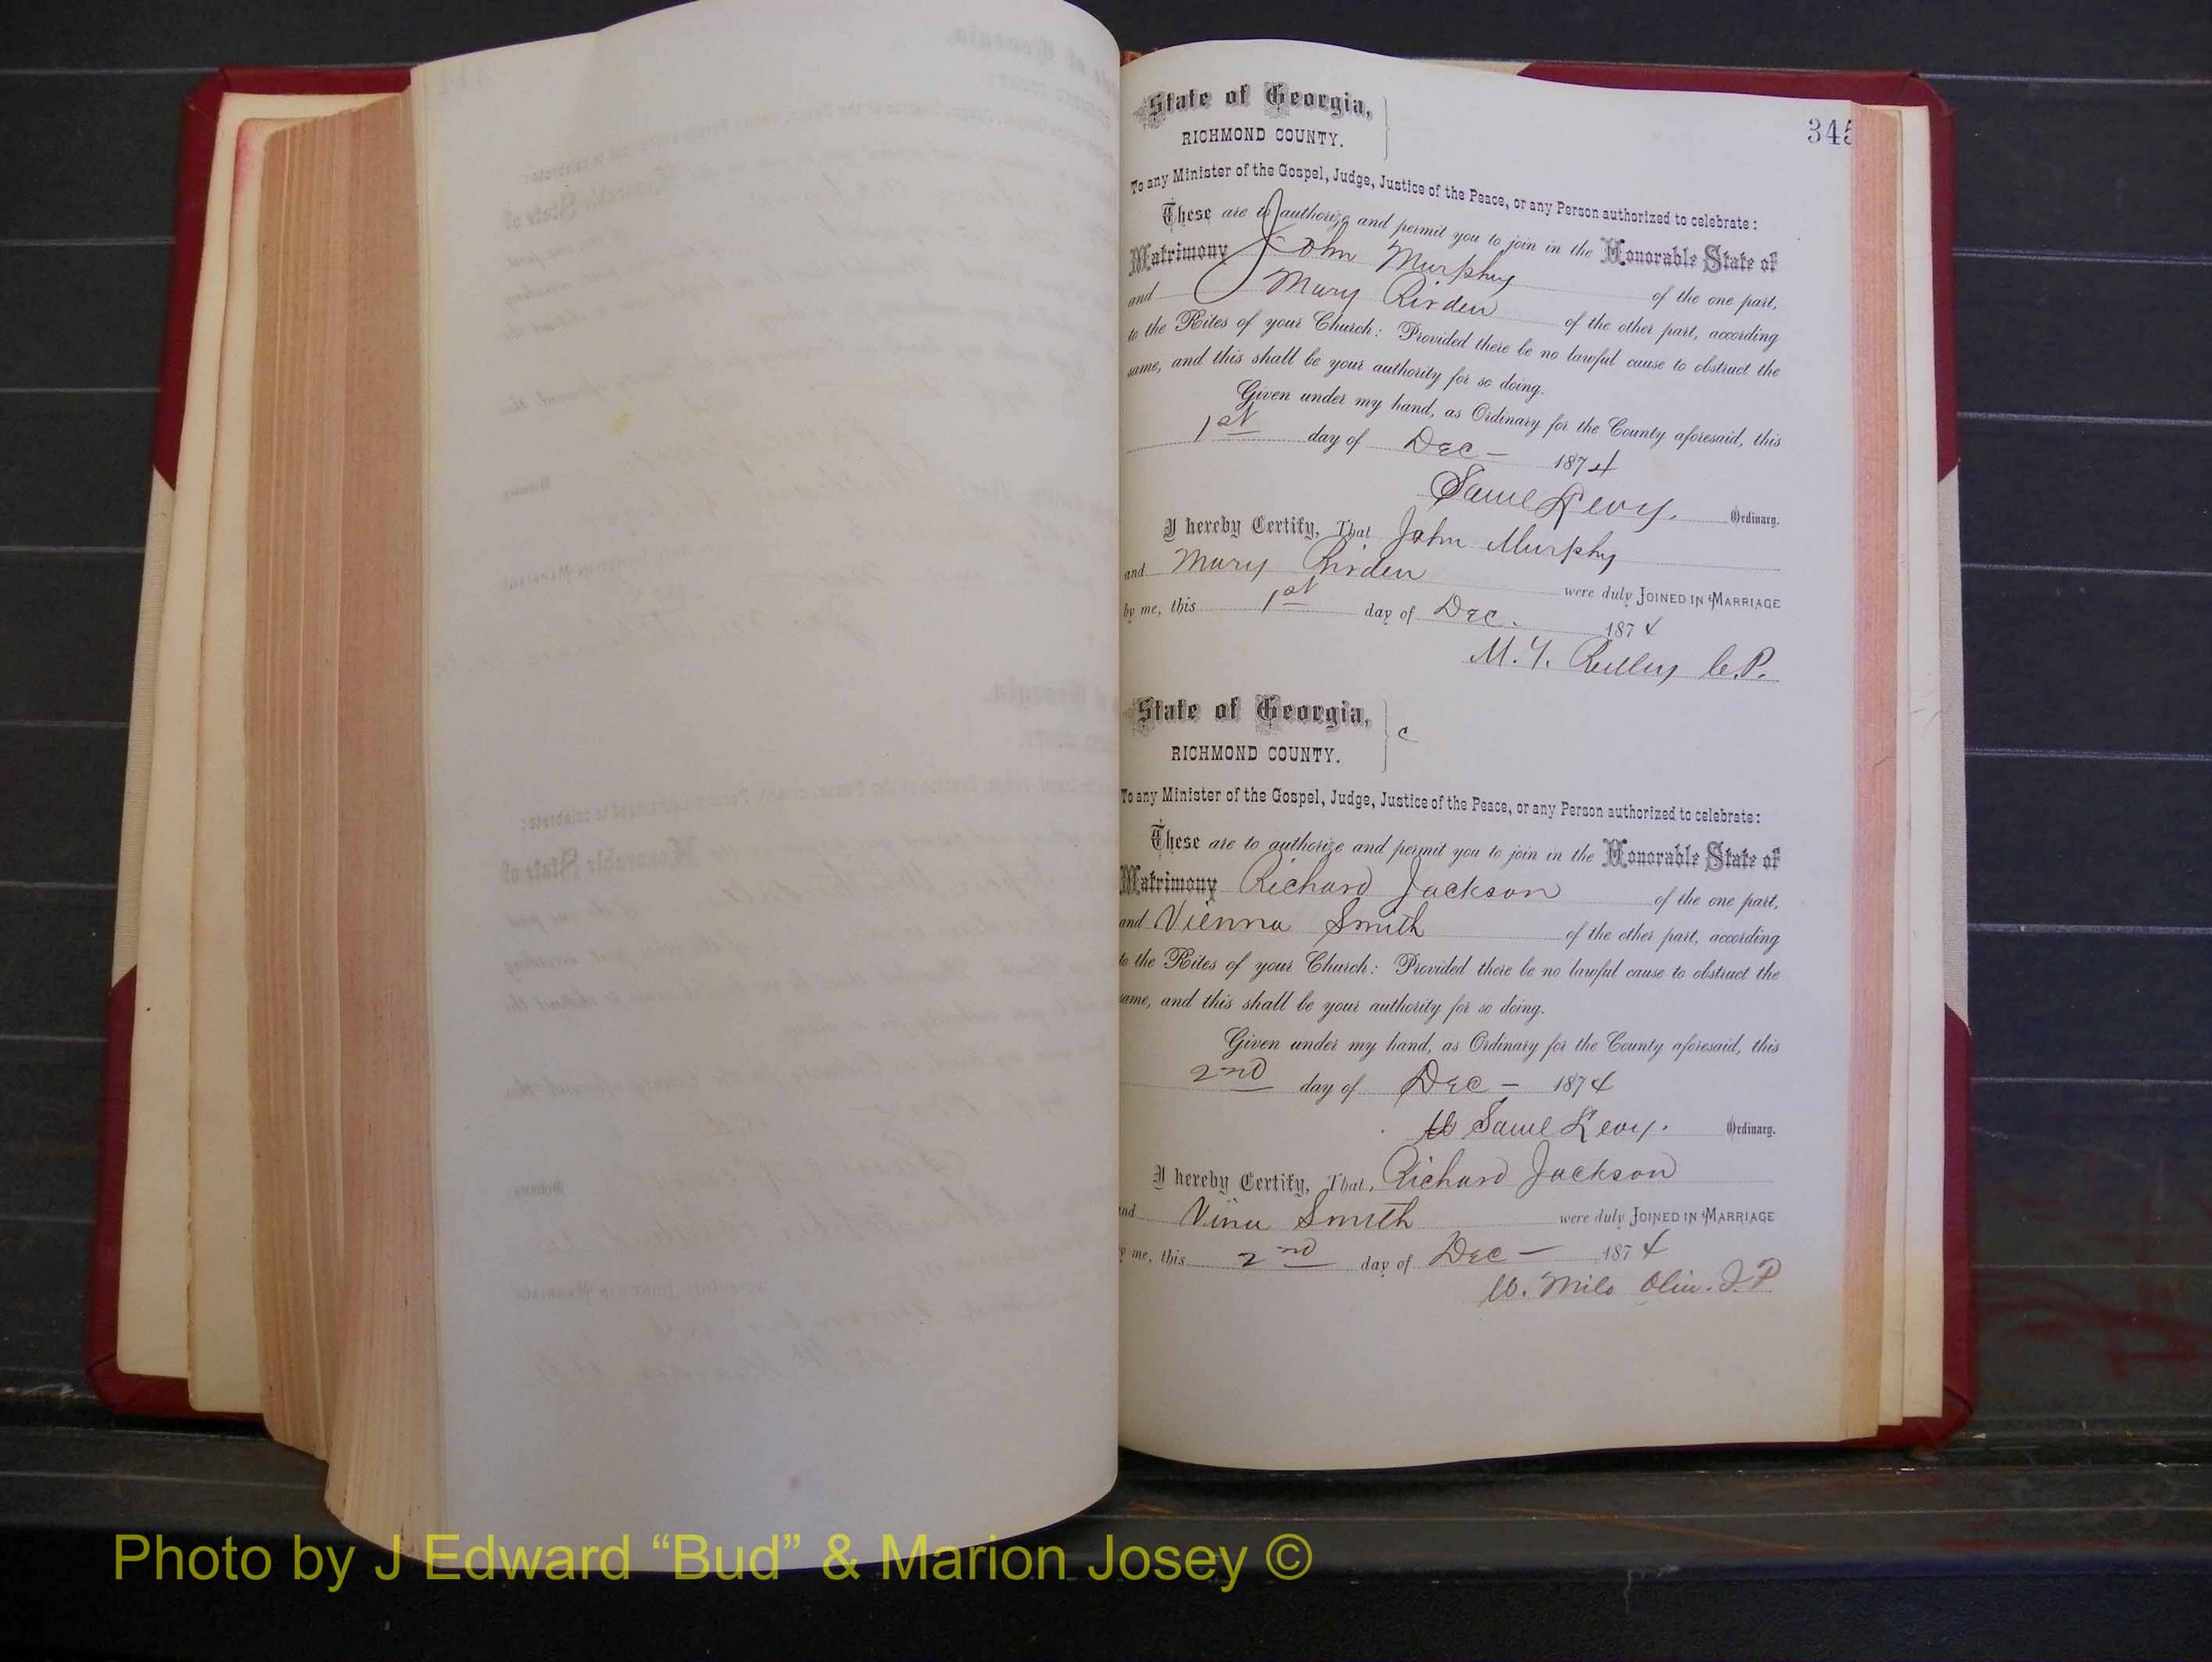 345
State of Georgia,
RICHMOND COUNTY.
To any Minister of the Gospel, Judge, Justice of the Peace, or any Person authorized to celebrate:
These are to authorize and permit you to join in the Honorable State of
Matrimony John Murphy of the one part,
and Mary Rirden of the other part, according
to the Rites of your Church: Provided there be no lawful cause to obstruct the
same, and this shall be your authority for so doing.
Given under my hand, as Ordinary for the County aforesaid, this
1st day of Dec - 1874
Saml Levy. Ordinary.
I hereby Certify, That John Murphy
and Mary Rirden were duly JOINED IN MARRIAGE
by me, this 1st day of Dec. 1874
M. Reilley C.P.
State of Georgia, c
RICHMOND COUNTY.
To any Minister of the Gospel, Judge, Justice of the Peace, or any Person authorized to celebrate:
These are to authorize and permit you to join in the Honorable State of
Matrimony Richard Jackson of the one part,
and Vienna Smith of the other part, according
to the Rites of your Church: Provided there be no lawful cause to obstruct the
same, and this shall be your authority for so doing.
Given under my hand, as Ordinary for the County aforesaid, this
2nd day of Dec - 1874
Saml Levy. Ordinary.
I hereby Certify, That, Richard Jackson
and Vina Smith were duly JOINED IN MARRIAGE
by me, this 2nd day of Dec - 1874
W. Milo Olin. J.P.
Photo by J Edward “Bud” & Marion Josey ©